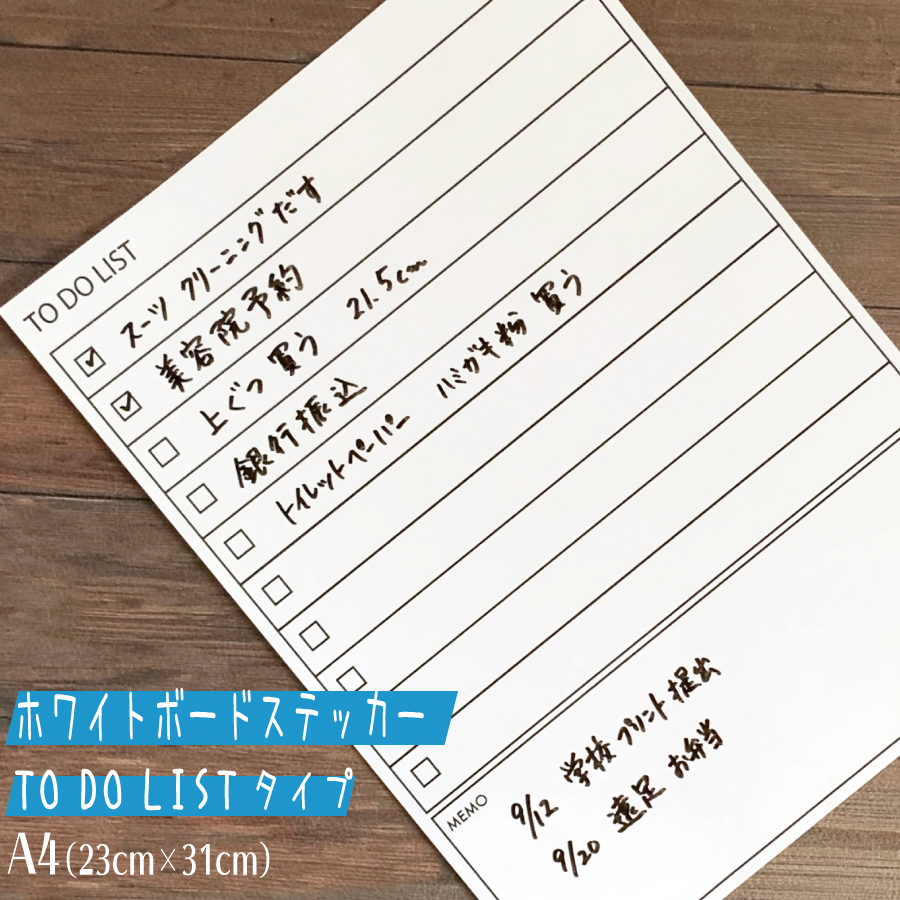 TO DO LIST
スーツ クリーニングだす
美容院予約
上ぐつ 買う 21.5cm
銀行振込
トイレットペーパー ハミガキ粉 買う
MEMO
9/12 学校プリント提出
9/20 遠足 お弁当
ホワイトボードステッカー
TO DO LISTタイプ
A4(23cm×31cm)